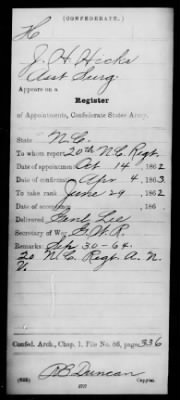 (CONFEDERATE.)
H
J. H. Hicks
Asst Surg.
Appears on a
Register
of Appointments, Confederate States Army.
State N.C.
To whom report 20th N.C. Regt.
Date of appointment Oct 14, 1862
Date of confirmation Apr 4, 1863.
To take rank June 29, 1862
Date of acceptance , 186 .
Delivered Genl Lee
Secretary of War G.W.R.
Remarks: Sep 30-64.
20 N.C. Regt. A. N.
V.
Confed. Arch., Chap. 1, File No. 86, page 336
P.B. Duncan
Copyist.